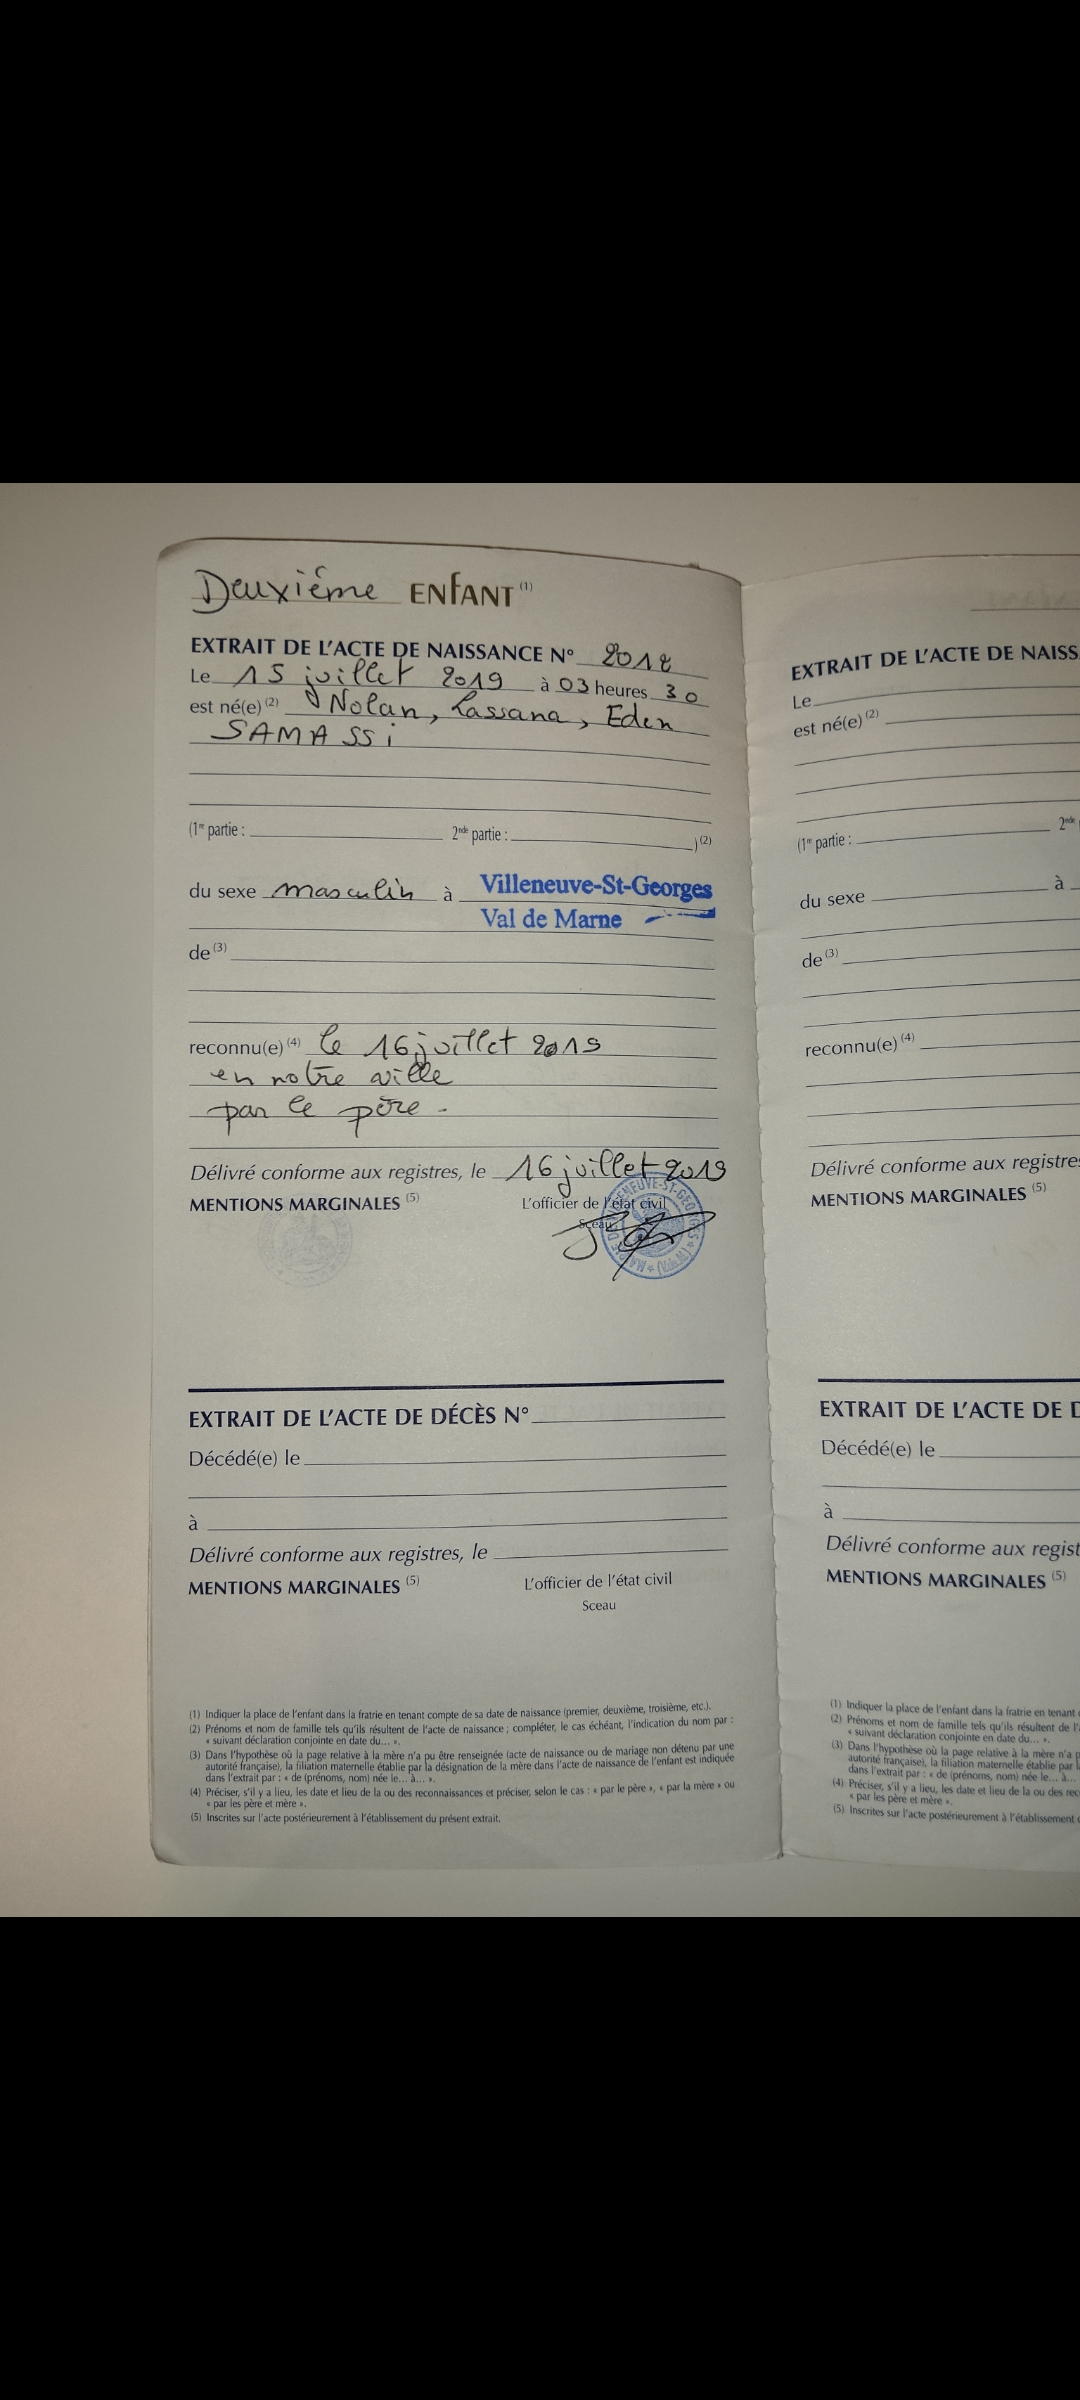 Deuxiéme ENFANT (1)
EXTRAIT DE L'ACTE DE NAISSANCE N° 2012
Le 15 juillet 2019 à 03 heures 30
est né(e) (2) Nolan, Lassana, Eden
SAMASSi
(1re partie : 2nde partie : ) (2)
du sexe masculin à Villeneuve-St-Georges
Val de Marne
de (3)
reconnu(e) (4) le 16 juillet 2019
en notre ville
par le père -
Délivré conforme aux registres, le 16 juillet 2019
MENTIONS MARGINALES (5) L'officier de l'état civil
Sceau
EXTRAIT DE L'ACTE DE DÉCÈS N°
Décédé(e) le
à
Délivré conforme aux registres, le
MENTIONS MARGINALES (5) L'officier de l'état civil
Sceau
(1) Indiquer la place de l'enfant dans la fratrie en tenant compte de sa date de naissance (premier, deuxième, troisième, etc.).
(2) Prénoms et nom de famille tels qu'ils résultent de l'acte de naissance ; compléter, le cas échéant, l'indication du nom par :
« suivant déclaration conjointe en date du... ».
(3) Dans l'hypothèse où la page relative à la mère n'a pu être renseignée (acte de naissance ou de mariage non détenu par une
autorité française), la filiation maternelle établie par la désignation de la mère dans l'acte de naissance de l'enfant est indiquée
dans l'extrait par : « de (prénoms, nom) née le... à... ».
(4) Préciser, s'il y a lieu, les date et lieu de la ou des reconnaissances et préciser, selon le cas : « par le père », « par la mère » ou
« par les père et mère ».
(5) Inscrites sur l'acte postérieurement à l'établissement du présent extrait.
EXTRAIT DE L'ACTE DE NAISS
Le
est né(e) (2)
(1re partie : 2nde
du sexe à
de (3)
reconnu(e) (4)
Délivré conforme aux registre
MENTIONS MARGINALES (5)
EXTRAIT DE L'ACTE DE D
Décédé(e) le
à
Délivré conforme aux regist
MENTIONS MARGINALES (5)
(1) Indiquer la place de l'enfant dans la fratrie en tenant
(2) Prénoms et nom de famille tels qu'ils résultent de l'
« suivant déclaration conjointe en date du... ».
(3) Dans l'hypothèse où la page relative à la mère n'a p
autorité française), la filiation maternelle établie par l
dans l'extrait par : « de (prénoms, nom) née le... à...
(4) Préciser, s'il y a lieu, les date et lieu de la ou des rec
« par les père et mère ».
(5) Inscrites sur l'acte postérieurement à l'établissement